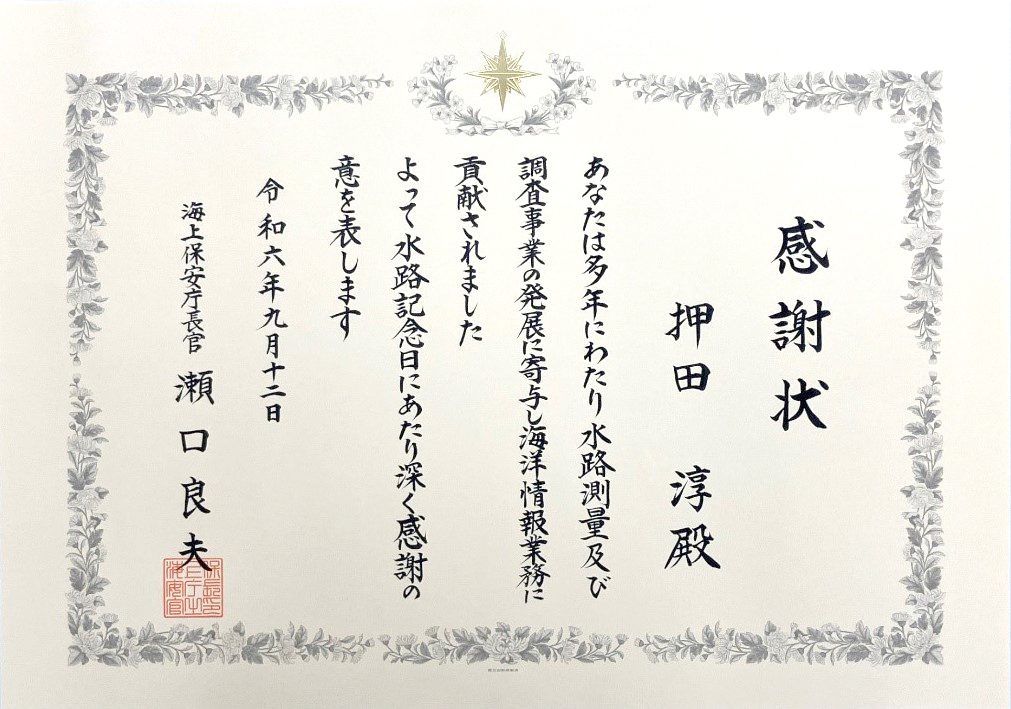 感謝状
押田 淳殿
あなたは多年にわたり水路測量及び
調査事業の発展に寄与し海洋情報業務に
貢献されました
よって水路記念日にあたり深く感謝の
意を表します
令和六年九月十二日
海上保安庁長官 瀬口良夫